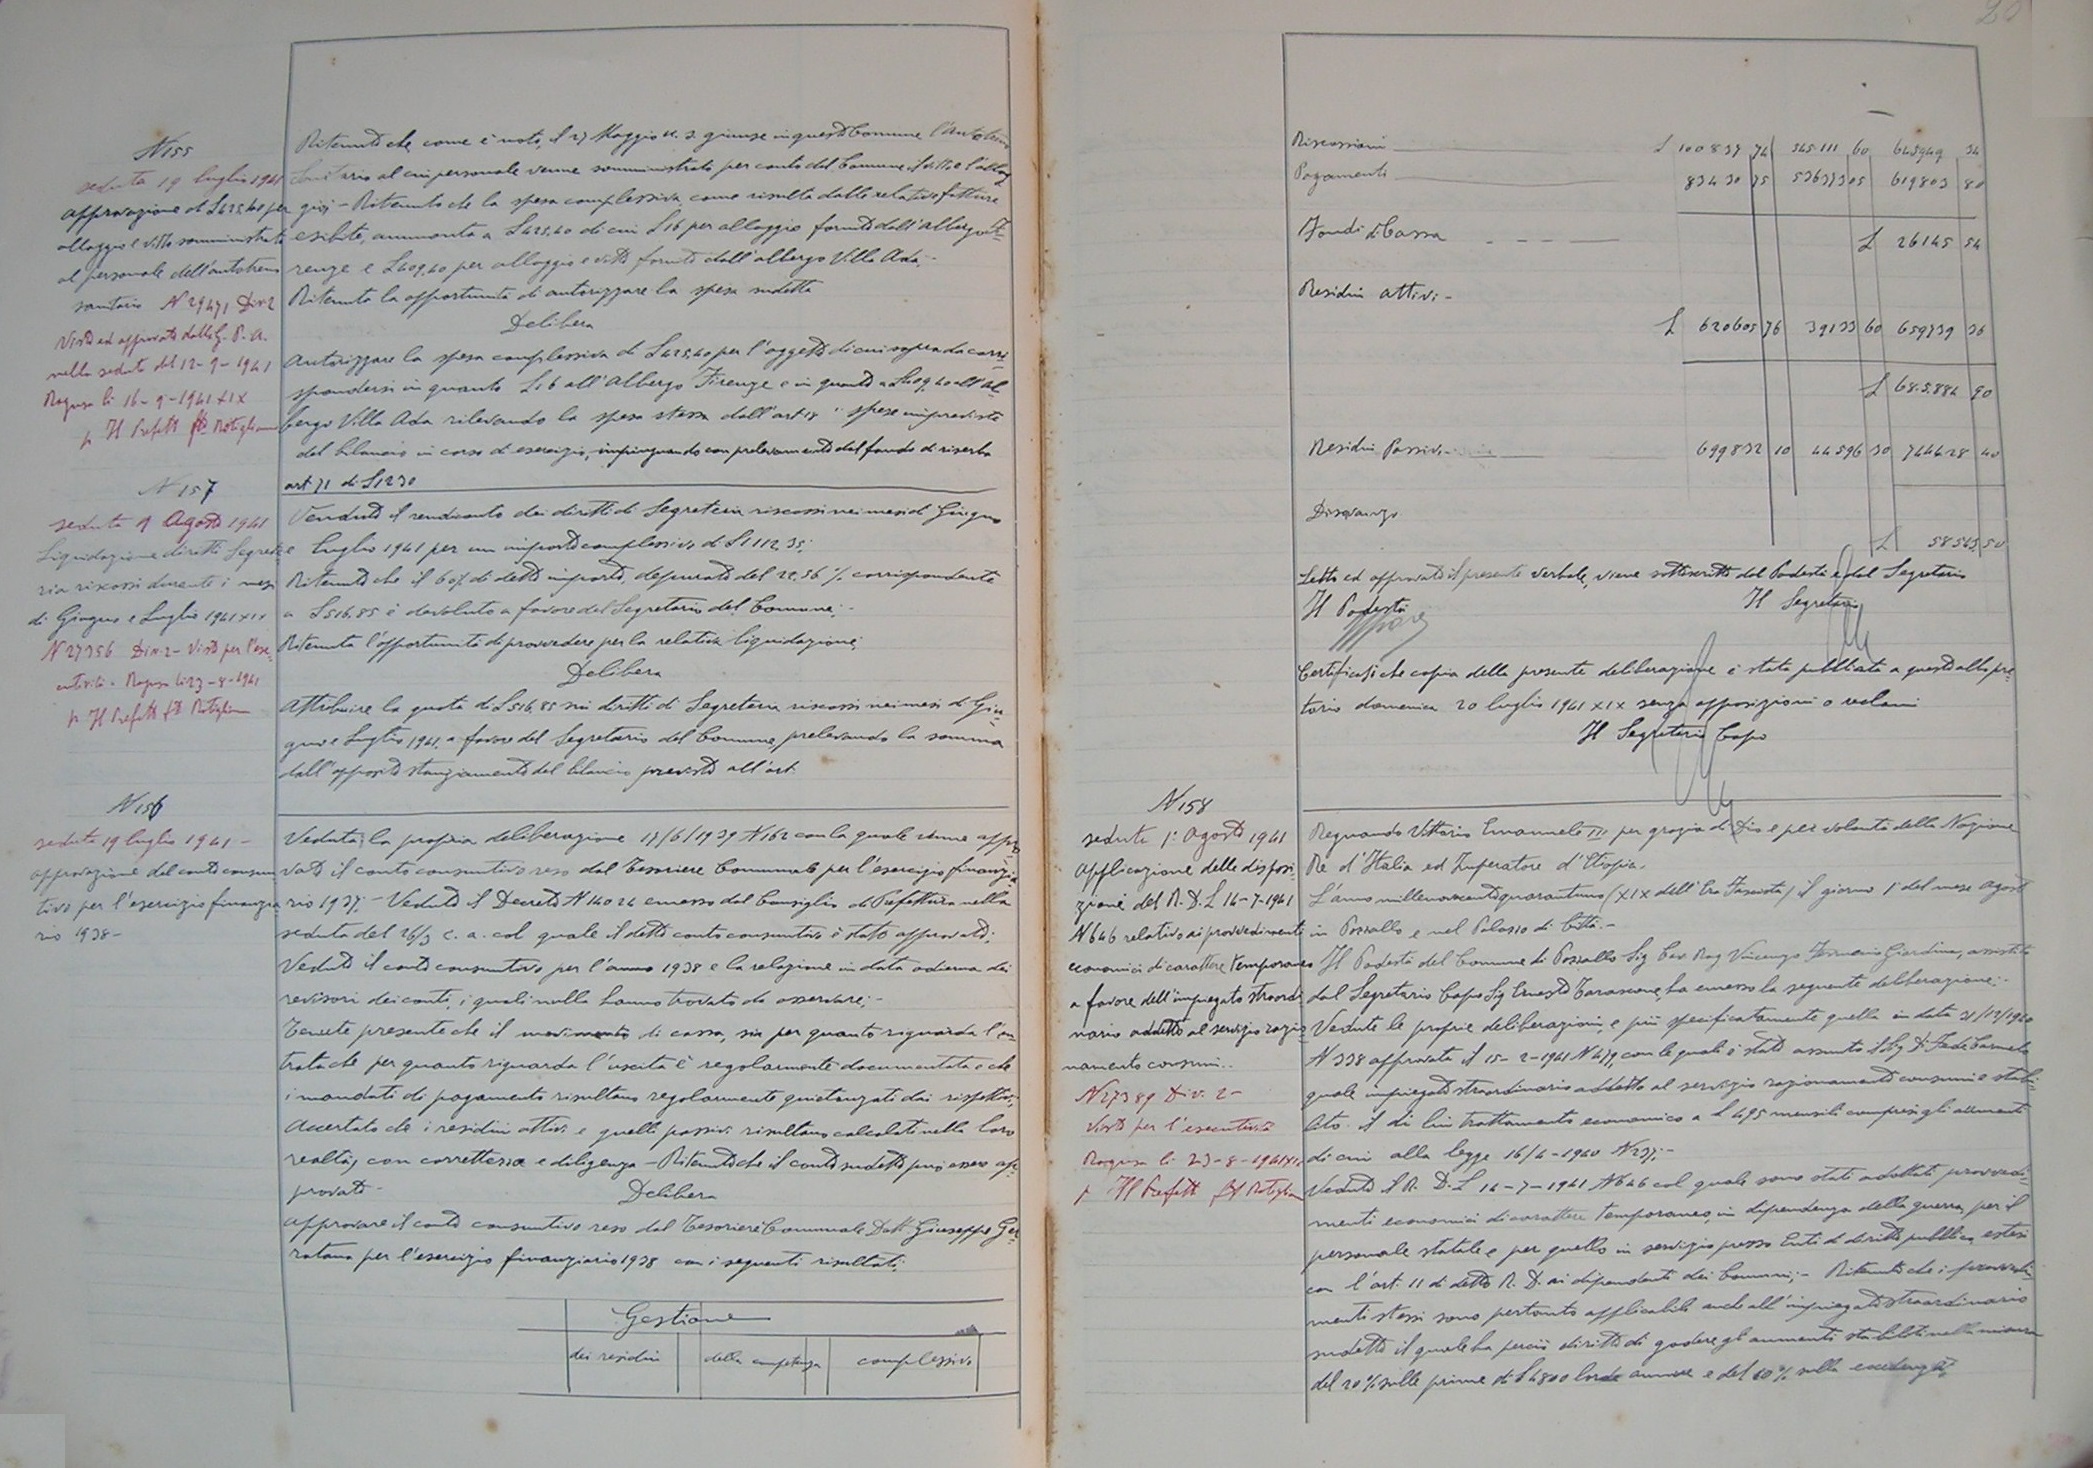 N 155
seduta 19 luglio 1941
approvazione di L 425,40 per
alloggio e vitto somministrato
al personale dell'autotreno
sanitario N 29471 Div. 2
Visto ed approvato dalla G. P. A.
nella seduta del 12-9-1941
Ragusa li 16-9-1941 XIX
p Il Prefetto
Ritenuto che, come è noto, il 27 Maggio u. s. giunse in questo Comune l'Autotreno
Sanitario al cui personale venne somministrato per conto del Comune il vitto e l'allog
gio; - Ritenuto che la spesa complessiva, come risulta dalle relative fatture
esibite, ammonta a L 425,40 di cui L 16 per alloggio fornito dall'albergo Fi-
renze e L 409,40 per alloggio e vitto forniti dall'albergo Villa Ada;-
Ritenuta la opportunità di autorizzare la spesa sudetta
Delibera
Autorizzare la spesa complessiva di L 425,40 per l'oggetto di cui sopra da corri-
spondersi in quanto L 16 all'Albergo Firenze e in quanto a L 409,40 all'Al-
bergo Villa Ada rilevando la spesa stessa dall'art 18 : spese impreviste
del bilancio in corso di esercizio, impinguando con prelevamento dal fondo di riserba
art 71 di L 1230
N 157
seduta 1 Agosto 1941
Liquidazione diritti Segrete
ria riscossi durante i mesi
di Giugno e Luglio 1941 XIX
N 27356 Div. 2 - Visto per l'ese-
cutività - Ragusa li 23-8-1941
p Il Prefetto
Veduto il rendiconto dei diritti di Segreteria riscossi nei mesi di Giugno
e Luglio 1941 per un importo complessivo di L 1112,35;
Ritenuto che il 60% di detto importo, depurato del 22,56 % corrispondente
a L 516,85 è devoluto a favore del Segretario del Comune;-
Ritenuta l'opportunità di provvedere per la relativa liquidazione;
Delibera
Attribuire la quota di L 516,85 sui diritti di Segreteria riscossi nei mesi di Giu-
gno e Luglio 1941, a favore del Segretario del Comune, prelevando la somma
dall'apposito stanziamento del bilancio previsto all'art.
N 156
seduta 19 luglio 1941 -
approvazione del conto consun
tivo per l'esercizio finanzia
rio 1938 -
Veduta la propria deliberazione 17/6/1939 N 162 con la quale venne appro-
vato il conto consuntivo reso dal Tesoriere Comunale per l'esercizio finanzia
rio 1937; - Veduto il Decreto N 14024 emesso dal Consiglio di Prefettura nella
seduta del 26/3 c. a. col quale il detto conto consuntivo è stato approvato;
Veduto il conto consuntivo per l'anno 1938 e la relazione in data odierna dei
revisori dei conti, i quali nulla hanno trovato da osservare;-
Tenute presente che il movimento di cassa, sia per quanto riguarda l'en-
trata che per quanto riguarda l'uscita è regolarmente documentata e che
i mandati di pagamento risultano regolarmente quietanzati dai rispettivi;
Accertato che i residui attivi e quelli passivi risultano calcolati nella loro
realtà, con correttezza e diligenza - Ritenuto che il conto sudetto può essere ap-
provato -
Delibera
Approvare il conto consuntivo reso dal Tesoriere Comunale Dott Giuseppe Ge-
ratana per l'esercizio finanziario 1938 con i seguenti risultati:
Gestione
dei residui della competenza complessiva
20
Riscossioni L 100837 74 545.111 60 645949 34
Pagamenti 83430 75 536373 05 619803 80
Fondi di Cassa L 26145 54
Residui attivi -
L 620605 76 39133 60 659739 36
L 685.884 90
Residui Passivi - 699832 10 44596 30 744428 40
Disavanzo
L 58543,50
Letto ed approvato il presente verbale, viene sottoscritto dal Podestà e dal Segretario
Il Podestà Il Segretario
Certificasi che copia della presente deliberazione è stata pubblicata a questo albo pre-
torio domenica 20 luglio 1941 XIX senza opposizioni o reclami
Il Segretario Capo
N 158
seduta 1° Agosto 1941
Applicazione delle disposi-
zioni del R. D. L 14-7-1941
N 646 relativo ai provvedimenti
economici di carattere temporaneo
a favore dell'impiegato straordi
nario addetto al servizio razio
namento consumi..
N 27389 Div. 2 -
Visto per l'esecutività
Ragusa li 23-8-1941 XIX
p Il Prefetto
Regnando Vittorio Emanuele III per grazia di Dio e per volontà della Nazione
Re d'Italia ed Imperatore d'Etiopia.
L'anno millenovecentoquarantuno (XIX dell'Era Fascista) il giorno 1° del mese Agosto
in Pozzallo e nel Palazzo di Città.-
Il Podestà del Comune di Pozzallo Sig Cav Rag Vincenzo Giardina, assistito
dal Segretario Capo Sig Ernesto Tarascone, ha emesso la seguente deliberazione:-
Vedute le proprie deliberazioni e più specificatamente quella in data 31/12/1940
N 338 approvata il 15-2-1941 N 479, con le quali è stato assunto il Sig Di Fede Carmelo
quale impiegato straordinario addetto al servizio razionamento consumi e stabi-
lito il di lui trattamento economico a L 495 mensili compresi gli aumenti
di cui alla legge 16/4-1940 N 237;-
Veduto il R. D. L 14-7-1941 N 646 col quale sono stati adottati provvedi-
menti economici di carattere temporaneo, in dipendenza della guerra, per il
personale statale e per quello in servizio presso Enti di diritto pubblico, estesi
con l'art. 11 di detto R. D. ai dipendenti dei Comuni;- Ritenuto che i provvedi-
menti stessi sono pertanto applicabili anche all'impiegato straordinario
sudetto il quale ha perciò diritto di godere gli aumenti stabiliti nella misura
del 20 % sulle prime di L 4800 lorde annue e del 10 % sulla eccedenza;